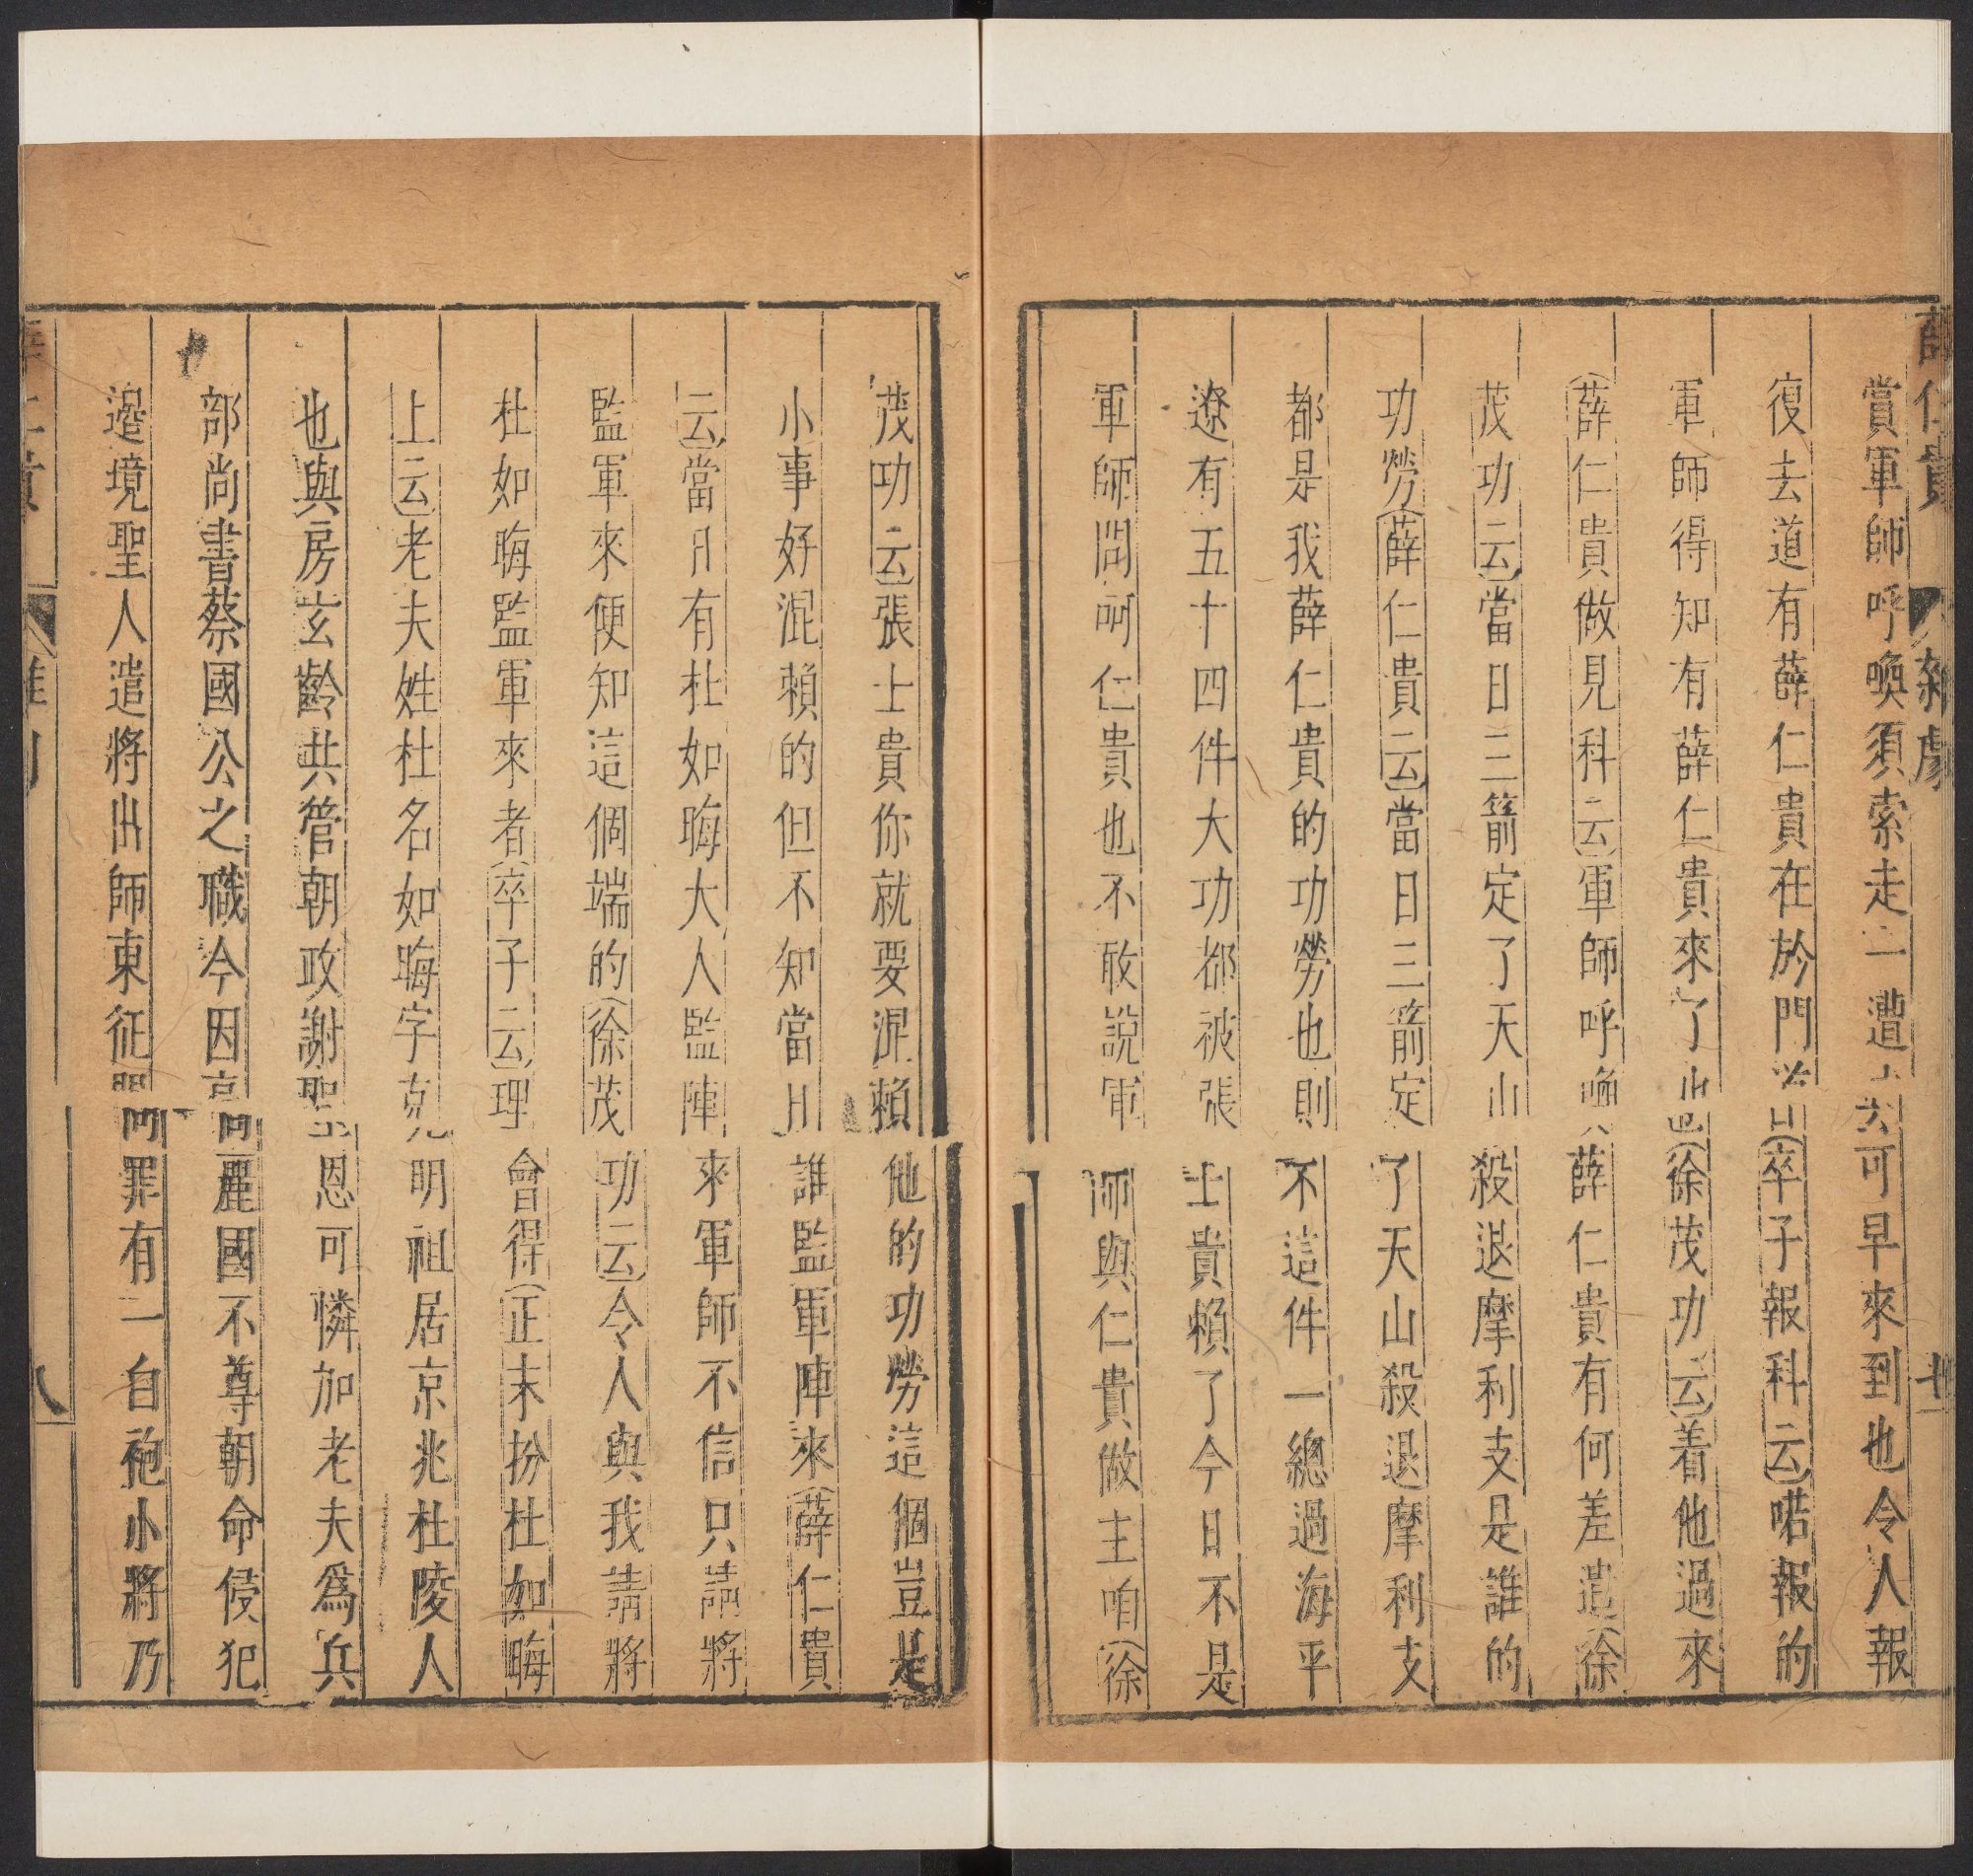 薛仁貴 雜劇 七
賞軍師呼喚須索走一遭去可早來到也令人報
復去道有薛仁貴在於門首(卒子報科云)喏報的
軍師得知有薛仁貴來了也(徐茂功云)着他過來
(薛仁貴做見科云)軍師呼喚薛仁貴有何差遣(徐
茂功云)當日三箭定了天山殺退摩利支是誰的
功勞(薛仁貴云)當日三箭定了天山殺退摩利支
都是我薛仁貴的功勞也則不這件一總過海平
遼有五十四件大功都被張士貴賴了今日不是
軍師問呵仁貴也不敢說軍師與仁貴做主咱(徐
茂功云)張士貴你就要混賴他的功勞這個豈是
小事好混賴的但不知當日誰監軍陣來(薛仁貴
云)當日有杜如晦大人監陣來軍師不信只請將
監軍來便知這個端的(徐茂功云)令人與我請將
杜如晦監軍來者(卒子云)理會得(正末扮杜如晦
上云)老夫姓杜名如晦字克明祖居京兆杜陵人
也與房玄齡共管朝政謝聖恩可憐加老夫爲兵
部尚書蔡國公之職今因高麗國不尊朝命侵犯
邉境聖人遣將出師東征問罪有一白袍小將乃
八